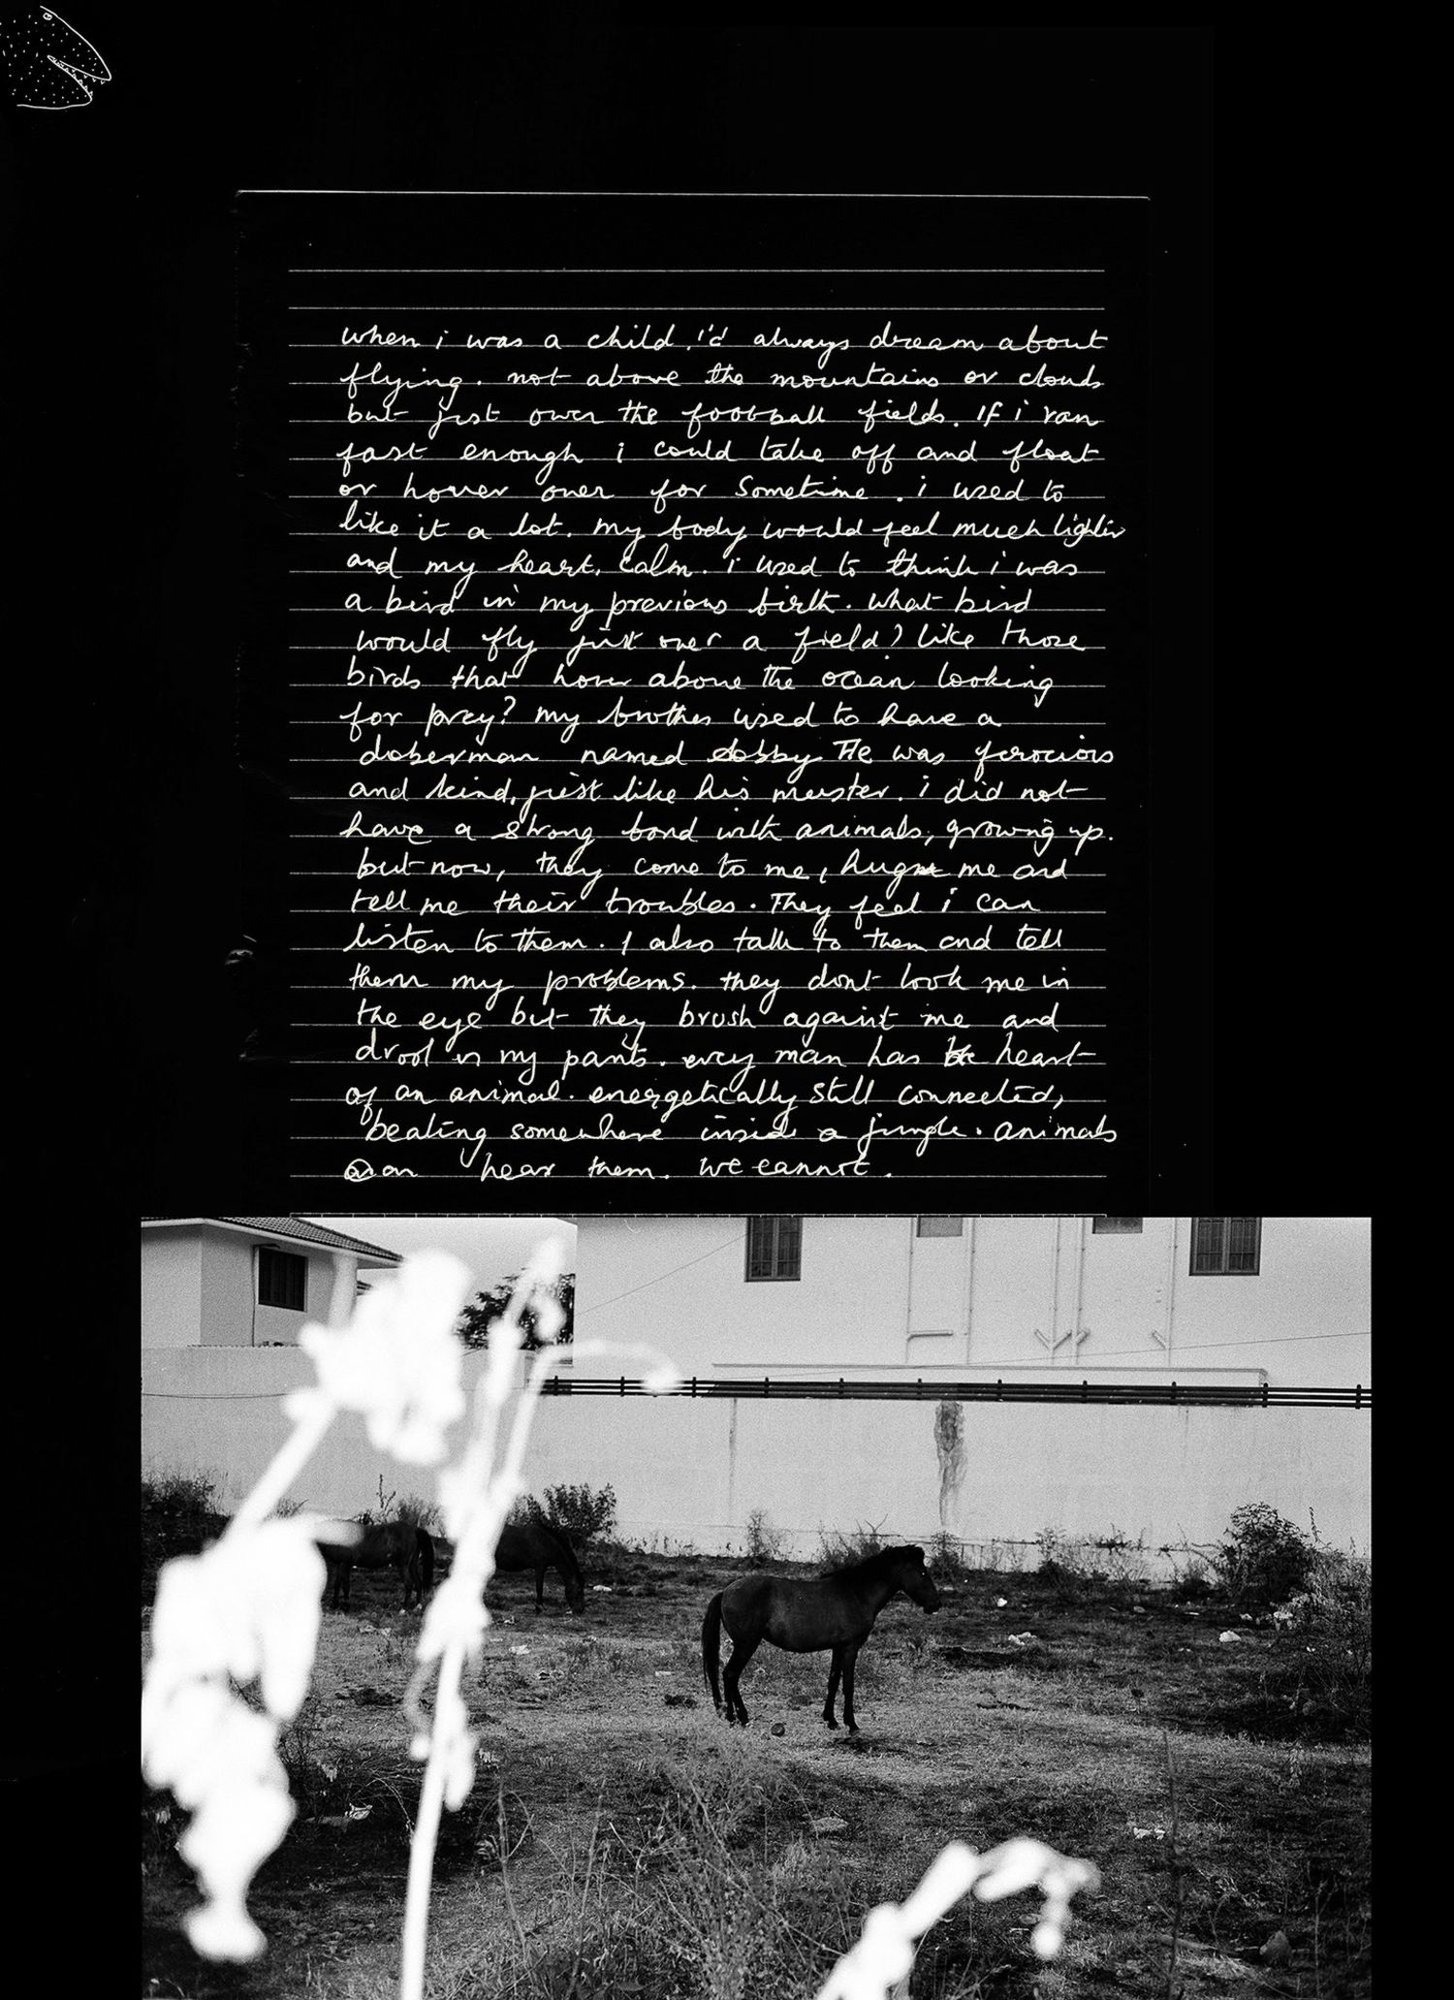 when i was a child, i'd always dream about
flying. not above the mountains or clouds
but just over the football fields. If i ran
fast enough i could take off and float
or hover over for sometime. i used to
like it a lot. my body would feel much lighter
and my heart, calm. i used to think i was
a bird in my previous birth. what bird
would fly just over a field? like those
birds that hover above the ocean looking
for prey? my brother used to have a
doberman named dobby. He was ferocious
and kind, just like his master. i did not
have a strong bond with animals, growing up.
but now, they come to me, hug me and
tell me their troubles. They feel i can
listen to them. I also talk to them and tell
them my problems. they dont look me in
the eye but they brush against me and
drool on my pants. every man has heart
of an animal. energetically still connected,
beating somewhere inside a jungle. animals
can hear them. we cannot.